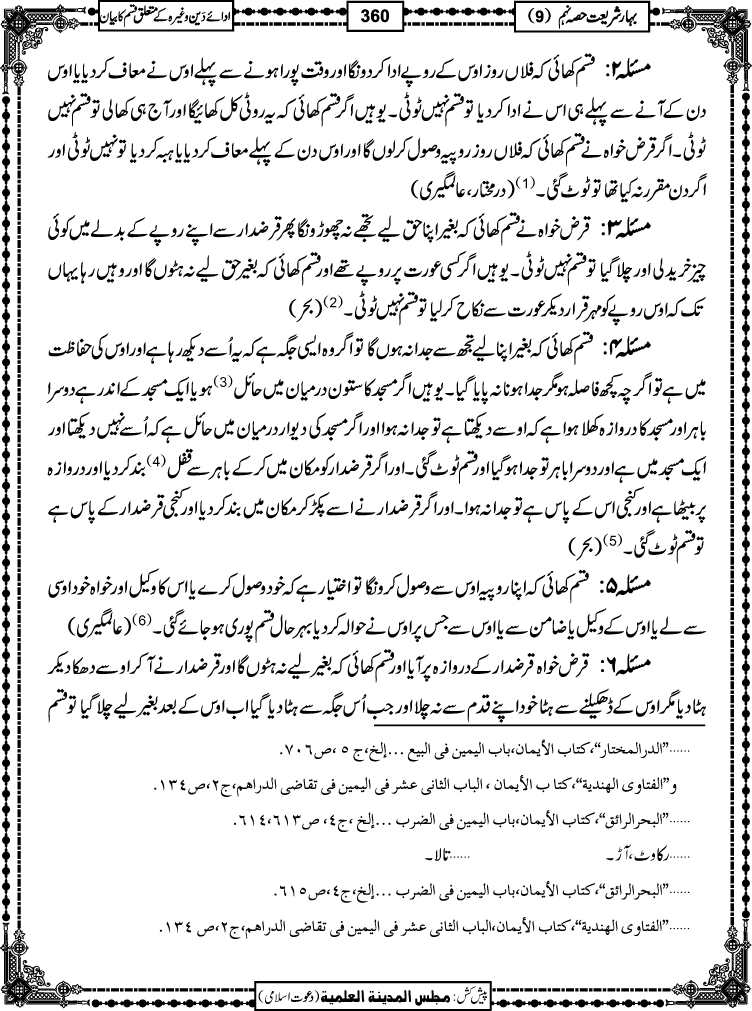 بہار شریعت حصہ نہم (9)
360
ادائے دَین وغیرہ کے متعلق قسم کا بیان
مسئلہ ۲: قسم کھائی کہ فلاں روز اوس کے روپے ادا کردونگا اور وقت پورا ہونے سے پہلے اوس نے معاف کردیا یا اوس
دن کے آنے سے پہلے ہی اس نے ادا کردیا تو قسم نہیں ٹوٹی۔ یوہیں اگر قسم کھائی کہ یہ روٹی کل کھائیگا اور آج ہی کھالی تو قسم نہیں
ٹوٹی۔ اگر قرض خواہ نے قسم کھائی کہ فلاں روز روپیہ وصول کرلوں گا اور اوس دن کے پہلے معاف کردیا یا ہبہ کردیا تو نہیں ٹوٹی اور
اگر دن مقرر نہ کیا تھا تو ٹوٹ گئی۔(1) (درمختار، عالمگیری)
مسئلہ ۳: قرض خواہ نے قسم کھائی کہ بغیر اپنا حق لیے تجھے نہ چھوڑونگا پھر قرضدار سے اپنے روپے کے بدلے میں کوئی
چیز خرید لی اور چلا گیا تو قسم نہیں ٹوٹی۔ یوہیں اگر کسی عورت پر روپے تھے اور قسم کھائی کہ بغیر حق لیے نہ ہٹوں گا اور وہیں رہا یہاں
تک کہ اوس روپے کو مہر قرار دیکر عورت سے نکاح کرلیا تو قسم نہیں ٹوٹی۔(2) (بحر)
مسئلہ ۴: قسم کھائی کہ بغیر اپنا لیے تجھ سے جدا نہ ہوں گا تو اگر وہ ایسی جگہ ہے کہ یہ اُسے دیکھ رہا ہے اور اوس کی حفاظت
میں ہے تو اگرچہ کچھ فاصلہ ہو مگر جدا ہونا نہ پایا گیا۔ یوہیں اگر مسجد کا ستون درمیان میں حائل(3) ہو یا ایک مسجد کے اندر ہے دوسرا
باہر اور مسجد کا دروازہ کھلا ہوا ہے کہ اوسے دیکھتا ہے تو جدا نہ ہوا اور اگر مسجد کی دیوار درمیان میں حائل ہے کہ اُسے نہیں دیکھتا اور
ایک مسجد میں ہے اور دوسرا باہر تو جدا ہوگیا اور قسم ٹوٹ گئی۔ اور اگر قرضدار کو مکان میں کرکے باہر سے قفل(4) بند کردیا اور دروازہ
پر بیٹھا ہے اور کنجی اس کے پاس ہے تو جدا نہ ہوا۔ اور اگر قرضدار نے اسے پکڑ کر مکان میں بند کردیا اور کنجی قرضدار کے پاس ہے
تو قسم ٹوٹ گئی۔(5) (بحر)
مسئلہ ۵: قسم کھائی کہ اپنا روپیہ اوس سے وصول کرونگا تو اختیار ہے کہ خود وصول کرے یا اس کا وکیل اور خواہ خود اوسی
سے لے یا اوس کے وکیل یا ضامن سے یا اوس سے جس پر اوس نے حوالہ کردیا بہر حال قسم پوری ہو جائے گی۔(6) (عالمگیری)
مسئلہ ۶: قرض خواہ قرضدار کے دروازہ پر آیا اور قسم کھائی کہ بغیر لیے نہ ہٹوں گا اور قرضدار نے آکر اوسے دھکا دیکر
ہٹا دیا مگر اوس کے ڈھکیلنے سے ہٹا خود اپنے قدم سے نہ چلا اور جب اُس جگہ سے ہٹا دیا گیا اب اوس کے بعد بغیر لیے چلا گیا تو قسم
......”الدرالمختار“، کتاب الأیمان، باب الیمین فی البیع ... إلخ، ج ۵، ص۷۰۶.
و”الفتاوی الھندیة“، کتاب الأیمان، الباب الثانی عشر فی الیمین فی تقاضی الدراھم، ج۲، ص۱۳۴.
......”البحرالرائق“، کتاب الأیمان، باب الیمین فی الضرب ... إلخ، ج٤، ص۶۱۴،۶۱۳.
......رکاوٹ، آڑ۔ ......تالا۔
......”البحرالرائق“، کتاب الأیمان، باب الیمین فی الضرب ... إلخ، ج٤، ص۶۱۵.
......”الفتاوی الھندیة“، کتاب الأیمان، الباب الثانی عشر فی الیمین فی تقاضی الدراھم، ج۲، ص ۱۳۴.
پیش کش: مجلس المدینة العلمیة (دعوت اسلامی)